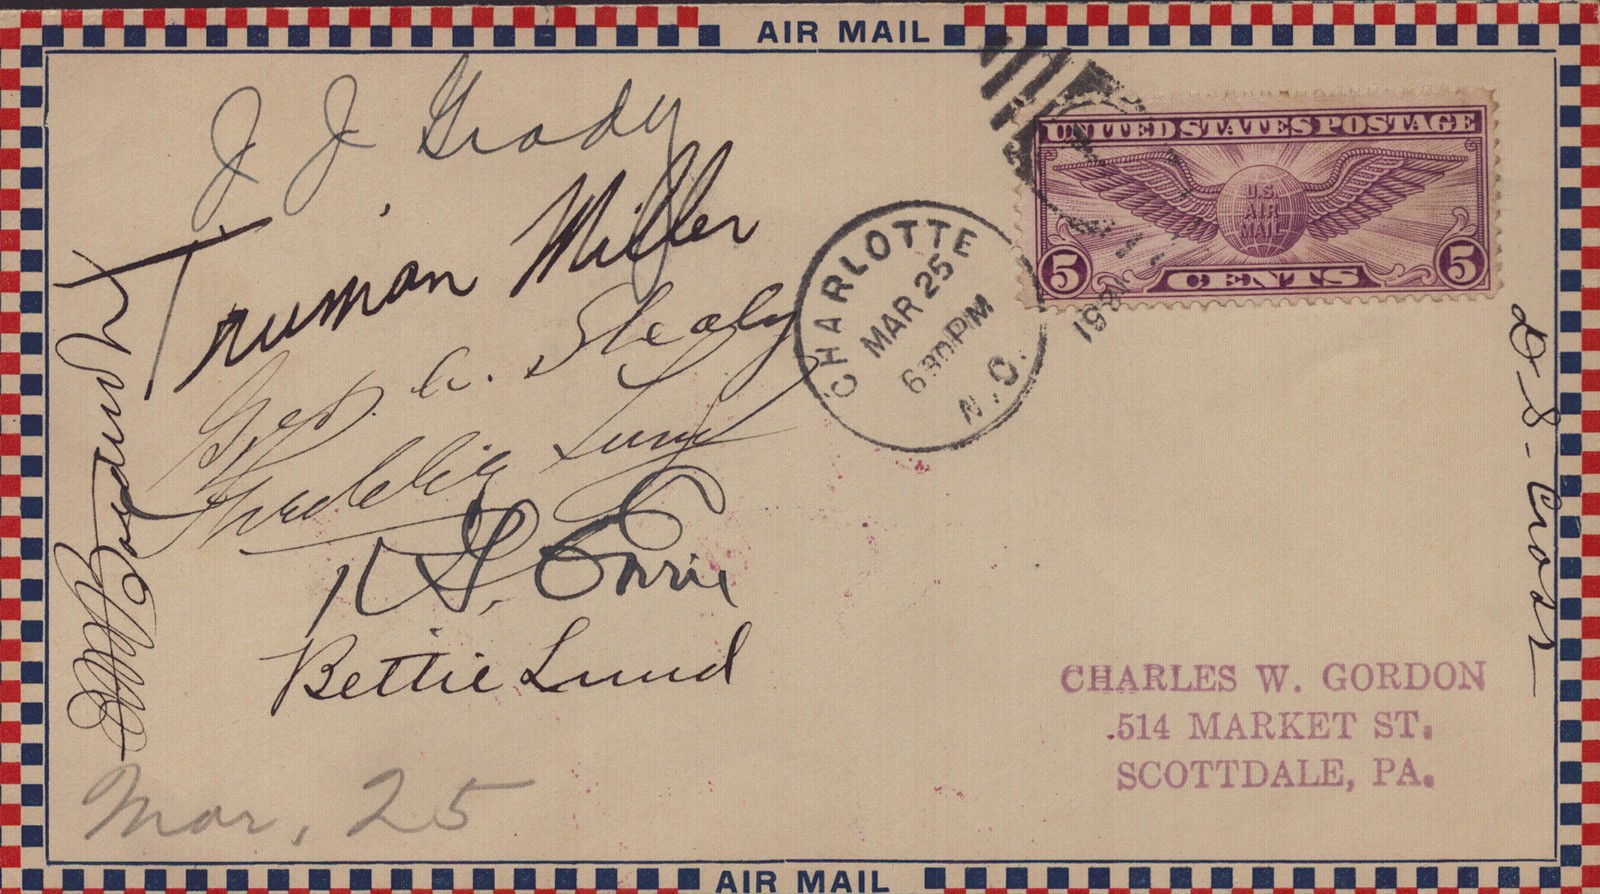 AIR MAIL
J J Grady
Truman Miller
Geo. A. Shealy
Freddie Lund
Bettie Lund
UNITED STATES POSTAGE
U.S.
AIR
MAIL
5 CENTS 5
CHARLOTTE
MAR 25
6 30 PM
N.C.
1931
CHARLES W. GORDON
.514 MARKET ST.
SCOTTDALE, PA.
Mar, 25
AIR MAIL